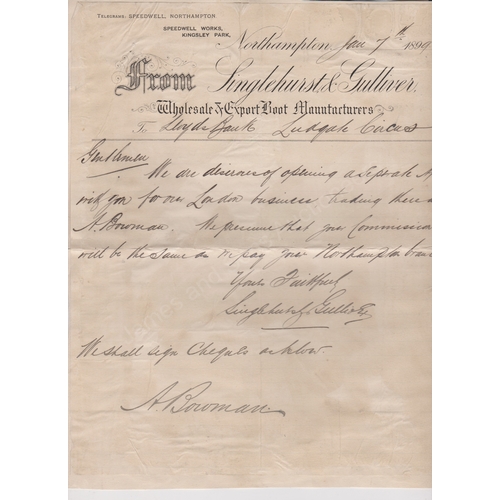 TELEGRAMS: SPEEDWELL, NORTHAMPTON.
SPEEDWELL WORKS,
KINGSLEY PARK,
Northampton, Jan 7th 1899
From Singlehurst & Gulliver,
Wholesale & Export Boot Manufacturers
To Lloyds Bank Ludgate Circus
Gentlemen
We are desireous of opening a separate
with you for our London business, trading there
A. Bowman. We presume that your Commission
will be the same as we pay your Northampton
Yours Faithfully
Singlehurst & Gulliver
We shall sign Cheques as below.
A. Bowman